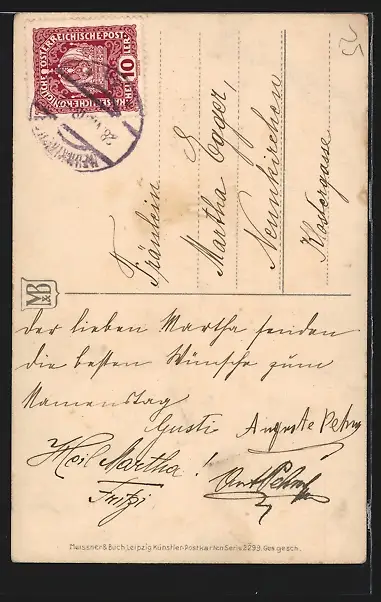 KAISERLICHE KÖNIGLICHE ÖSTERREICHISCHE POST
10
HELLER
Fräulein
Martha Egger,
Neunkirchen
Klostergasse
M&B
Der lieben Martha senden
die besten Wünsche zum
Namenstag
Gusti Auguste
Heil Martha!
Fritzi
Meissner & Buch, Leipzig Künstler-Postkarten Serie 2299. Ges. gesch.